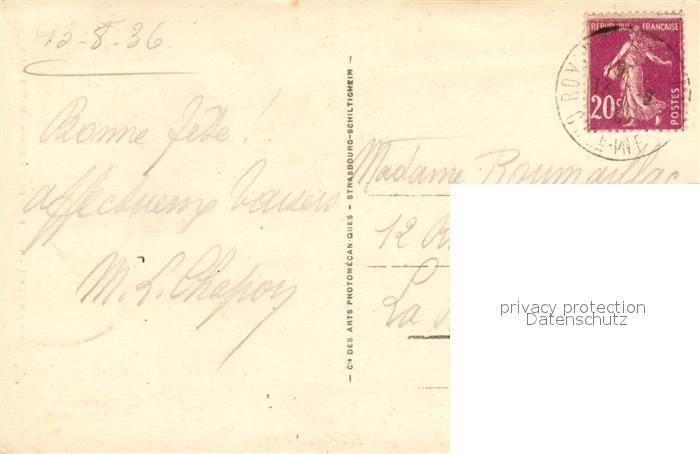 13-8-36
Bonne fête !
affectueux baisers
M. L. Chapoy
Cie DES ARTS PHOTOMÉCANIQUES - STRASBOURG-SCHILTIGHEIM
RÉPUBLIQUE FRANÇAISE
20c
POSTES
ROY
Madame Roumaillac
12 R
La
privacy protection
Datenschutz